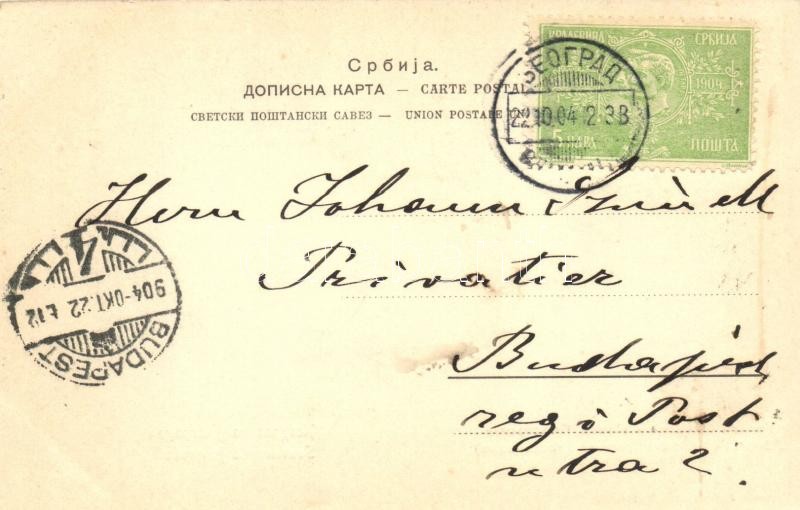 Србија.
ДОПИСНА КАРТА — CARTE POSTAL
СВЕТСКИ ПОШТАНСКИ САВЕЗ — UNION POSTALE UN
КРАЉЕВИНА СРБИЈА
1904
5 ПАРА ПОШТА
БЕОГРАД
22 10 04 2 3В
Herrn Johann
Privatier
Budapest
regi Post
utca 2.
904-OKT. 22
BUDAPEST